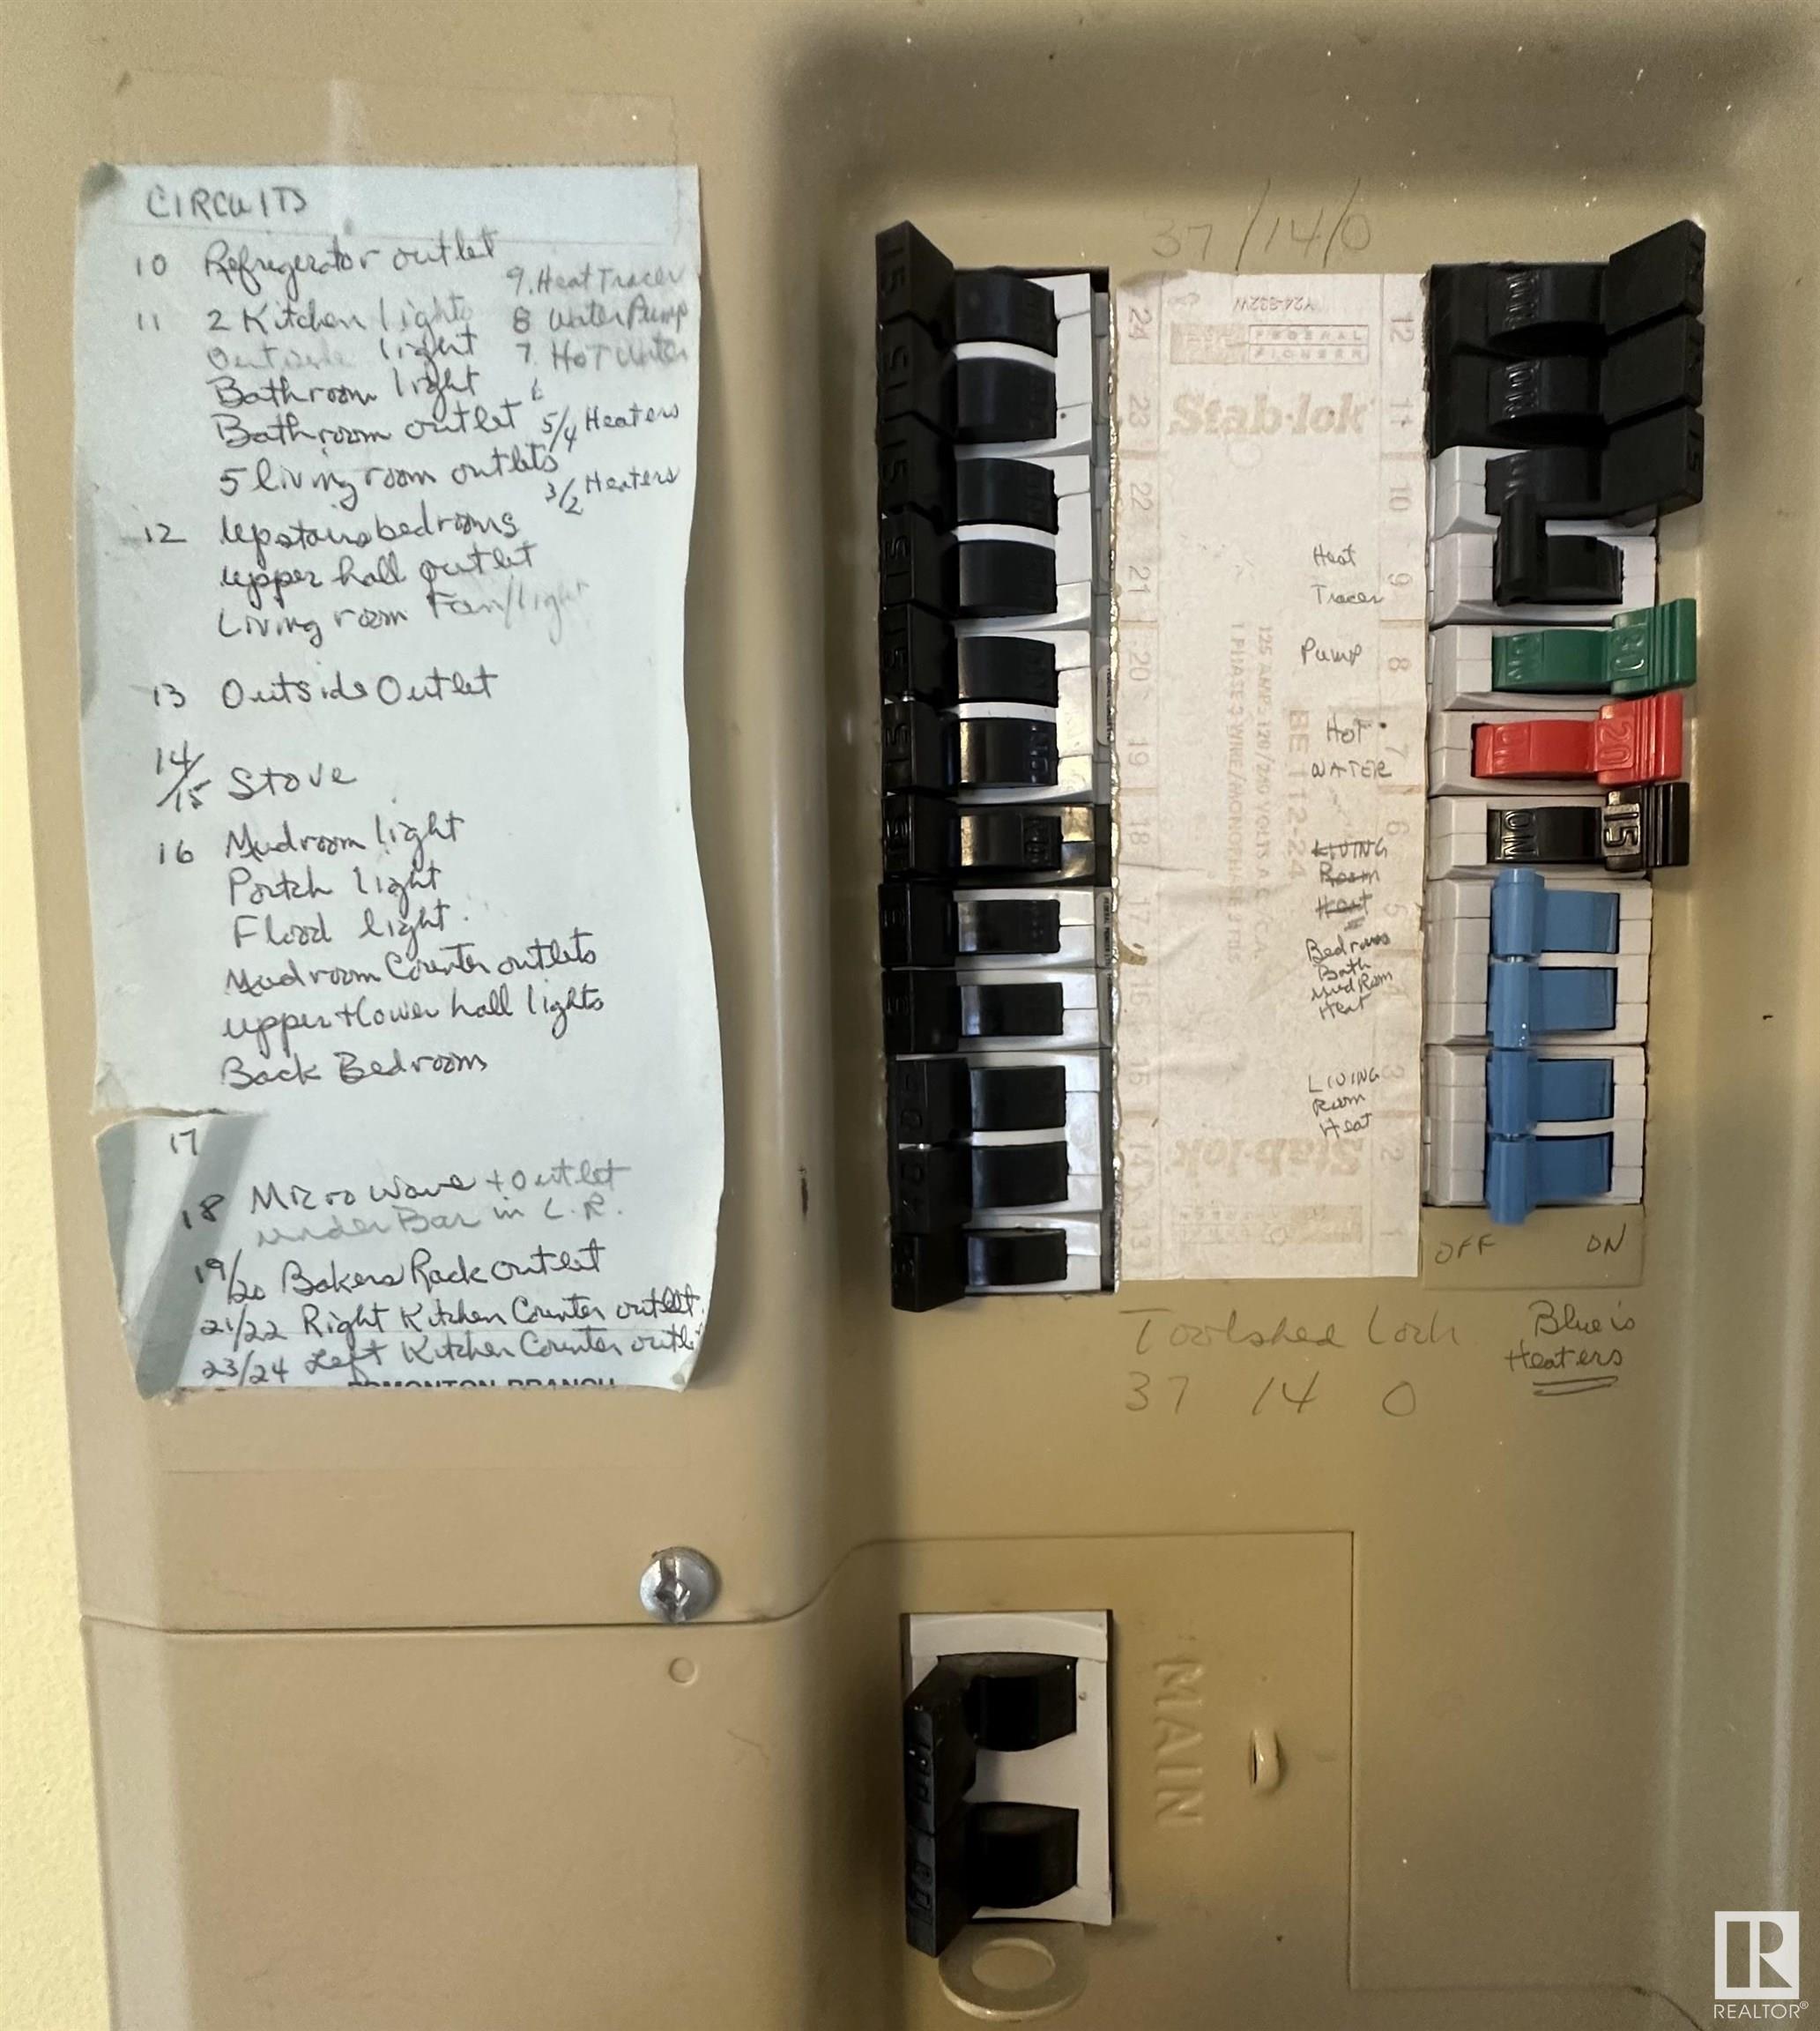 CIRCUITS
10 Refrigerator outlet
9. Heat Tracer
11 2 Kitchen lights
8 Water Pump
Outside light
7. Hot Water
Bathroom light
6
Bathroom outlet
5/4 Heaters
5 living room outlets
3/2 Heaters
12 Upstairs bedrooms
upper hall outlet
Living room Fan/light
13 Outside Outlet
14/15 Stove
16 Mudroom light
Portch light
Flood light
Mudroom Counter outlets
upper + lower hall lights
Back Bedroom
17
18 Microwave + outlet
under Bar in L.R.
19/20 Bakers Rack outlet
21/22 Right Kitchen Counter outlet
23/24 Left Kitchen Counter outlet
EDMONTON BRANCH
37/14/0
Y24-832W
FEDERAL
PIONEER
Stab-lok
24
23
22
21
20
19
18
17
16
15
14
13
12
11
10
9
8
7
6
5
4
3
2
1
Heat
Tracer
Pump
Hot
WATER
LIVING
Room
Heat
Bedrooms
Bath
MudRoom
Heat
LIVING
Room
Heat
BE 112-24
Stab-lok
15
15
15
15
15
15
ON
30
ON
20
ON
15
OFF ON
Toolshed Lock
37 14 0
Blue is
Heaters
MAIN
REALTOR®